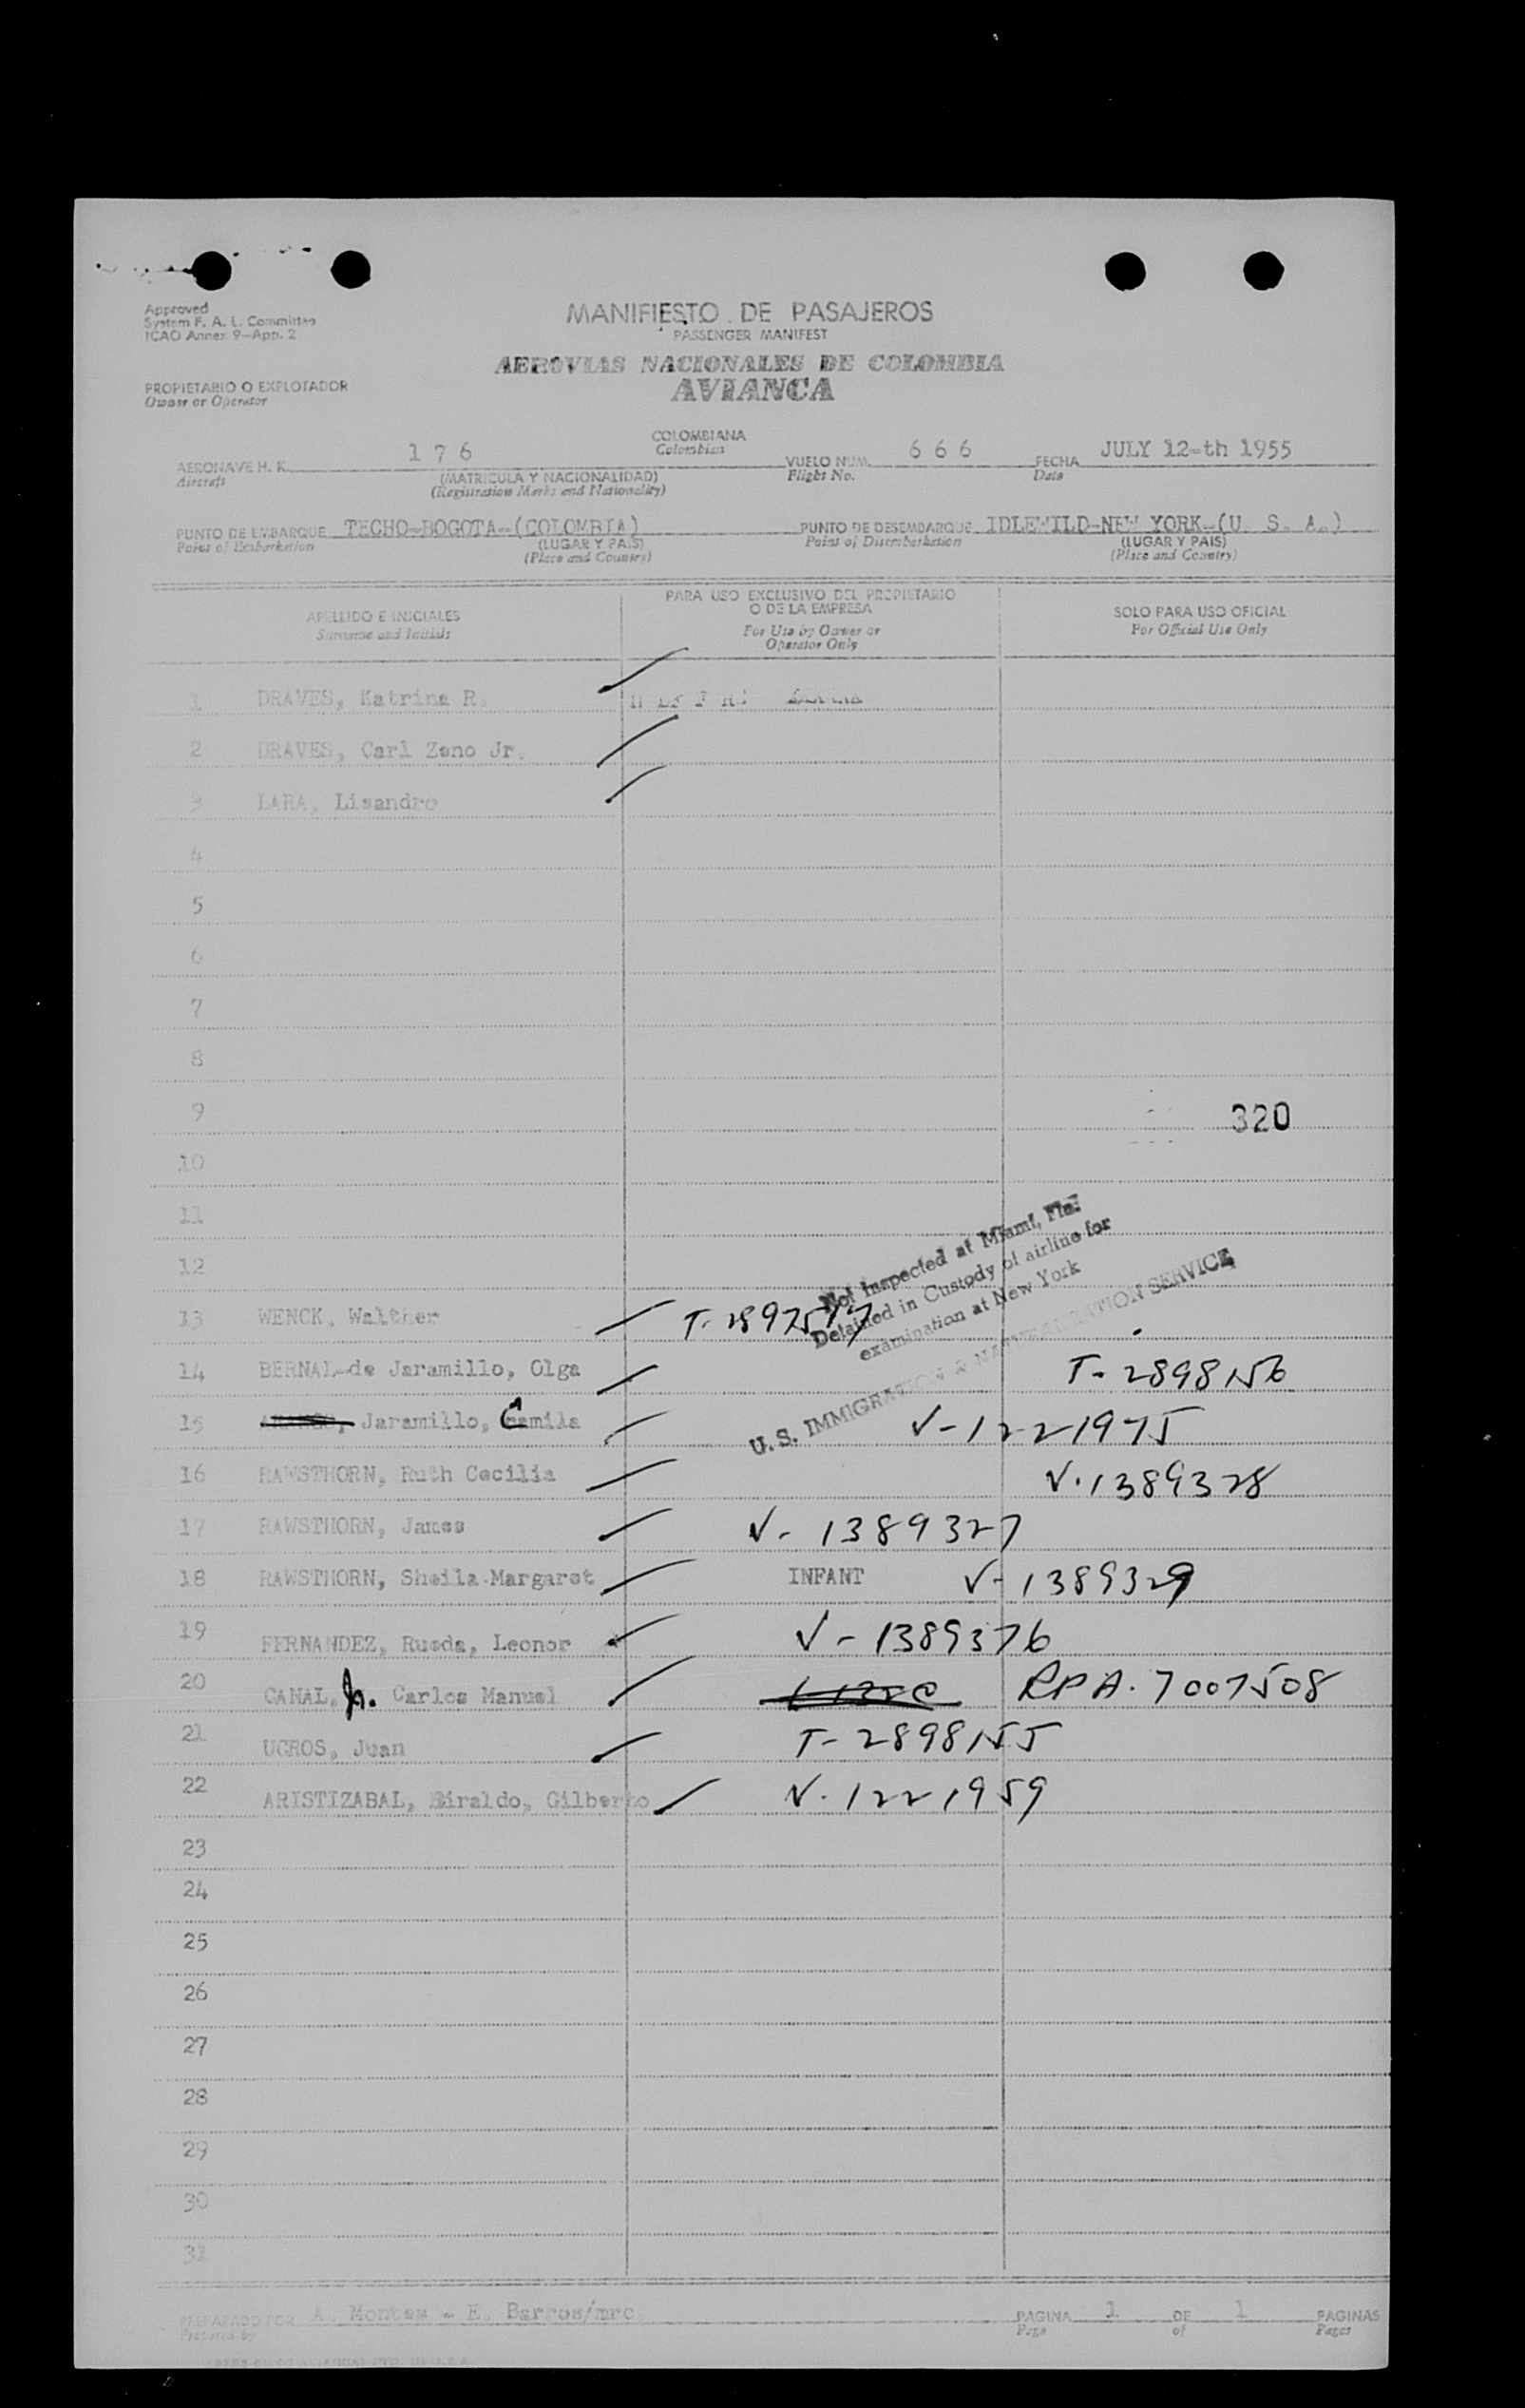 Approved
System F. A. L. Committee
ICAO Annex 9-App. 2
MANIFIESTO DE PASAJEROS
PASSENGER MANIFEST
AEROVIAS NACIONALES DE COLOMBIA
AVIANCA
PROPIETARIO O EXPLOTADOR
Owner or Operator
AERONAVE H. K. 176 COLOMBIANA VUELO NUM. 666 FECHA JULY 12-th 1955
Aircraft (MATRICULA Y NACIONALIDAD) Colombian Flight No. Date
(Registration Marks and Nationality)
PUNTO DE EMBARQUE TECHO-BOGOTA-(COLOMBIA) PUNTO DE DESEMBARQUE IDLEWILD-NEW YORK-(U. S. A.)
Point of Embarkation (LUGAR Y PAIS) Point of Disembarkation (LUGAR Y PAIS)
(Place and Country) (Place and Country)
APELLIDO E INICIALES PARA USO EXCLUSIVO DEL PROPIETARIO SOLO PARA USO OFICIAL
O DE LA EMPRESA
Surname and Initials For Use by Owner or For Official Use Only
Operator Only
1 DRAVES, Katrina R.
2 DRAVES, Carl Zeno Jr.
3 LARA, Lisandro
4
5
6
7
8
9 320
10
11
12
Not Inspected at Miami, Fla.
Detained in Custody of airline for
examination at New York
U.S. IMMIGRATION & NATURALIZATION SERVICE
13 WENCK, Walther
14 BERNAL-de Jaramillo, Olga T-2898156
15 Jaramillo, Camila V-1221975
16 RAWSTHORN, Ruth Cecilia V.1389328
17 RAWSTHORN, James V-1389327
18 RAWSTHORN, Sheila-Margaret INFANT V-1389329
19 FERNANDEZ, Rueda, Leonor V-1389376
20 CANAL, Jr. Carlos Manuel RPA.7007508
21 UCROS, Juan T-2898155
22 ARISTIZABAL, Giraldo, Gilberto V.1221959
23
24
25
26
27
28
29
30
31
PREPARADO POR A. Montes - E. Barros/mrc PAGINA 1 DE 1 PAGINAS
Prepared by Page of Pages